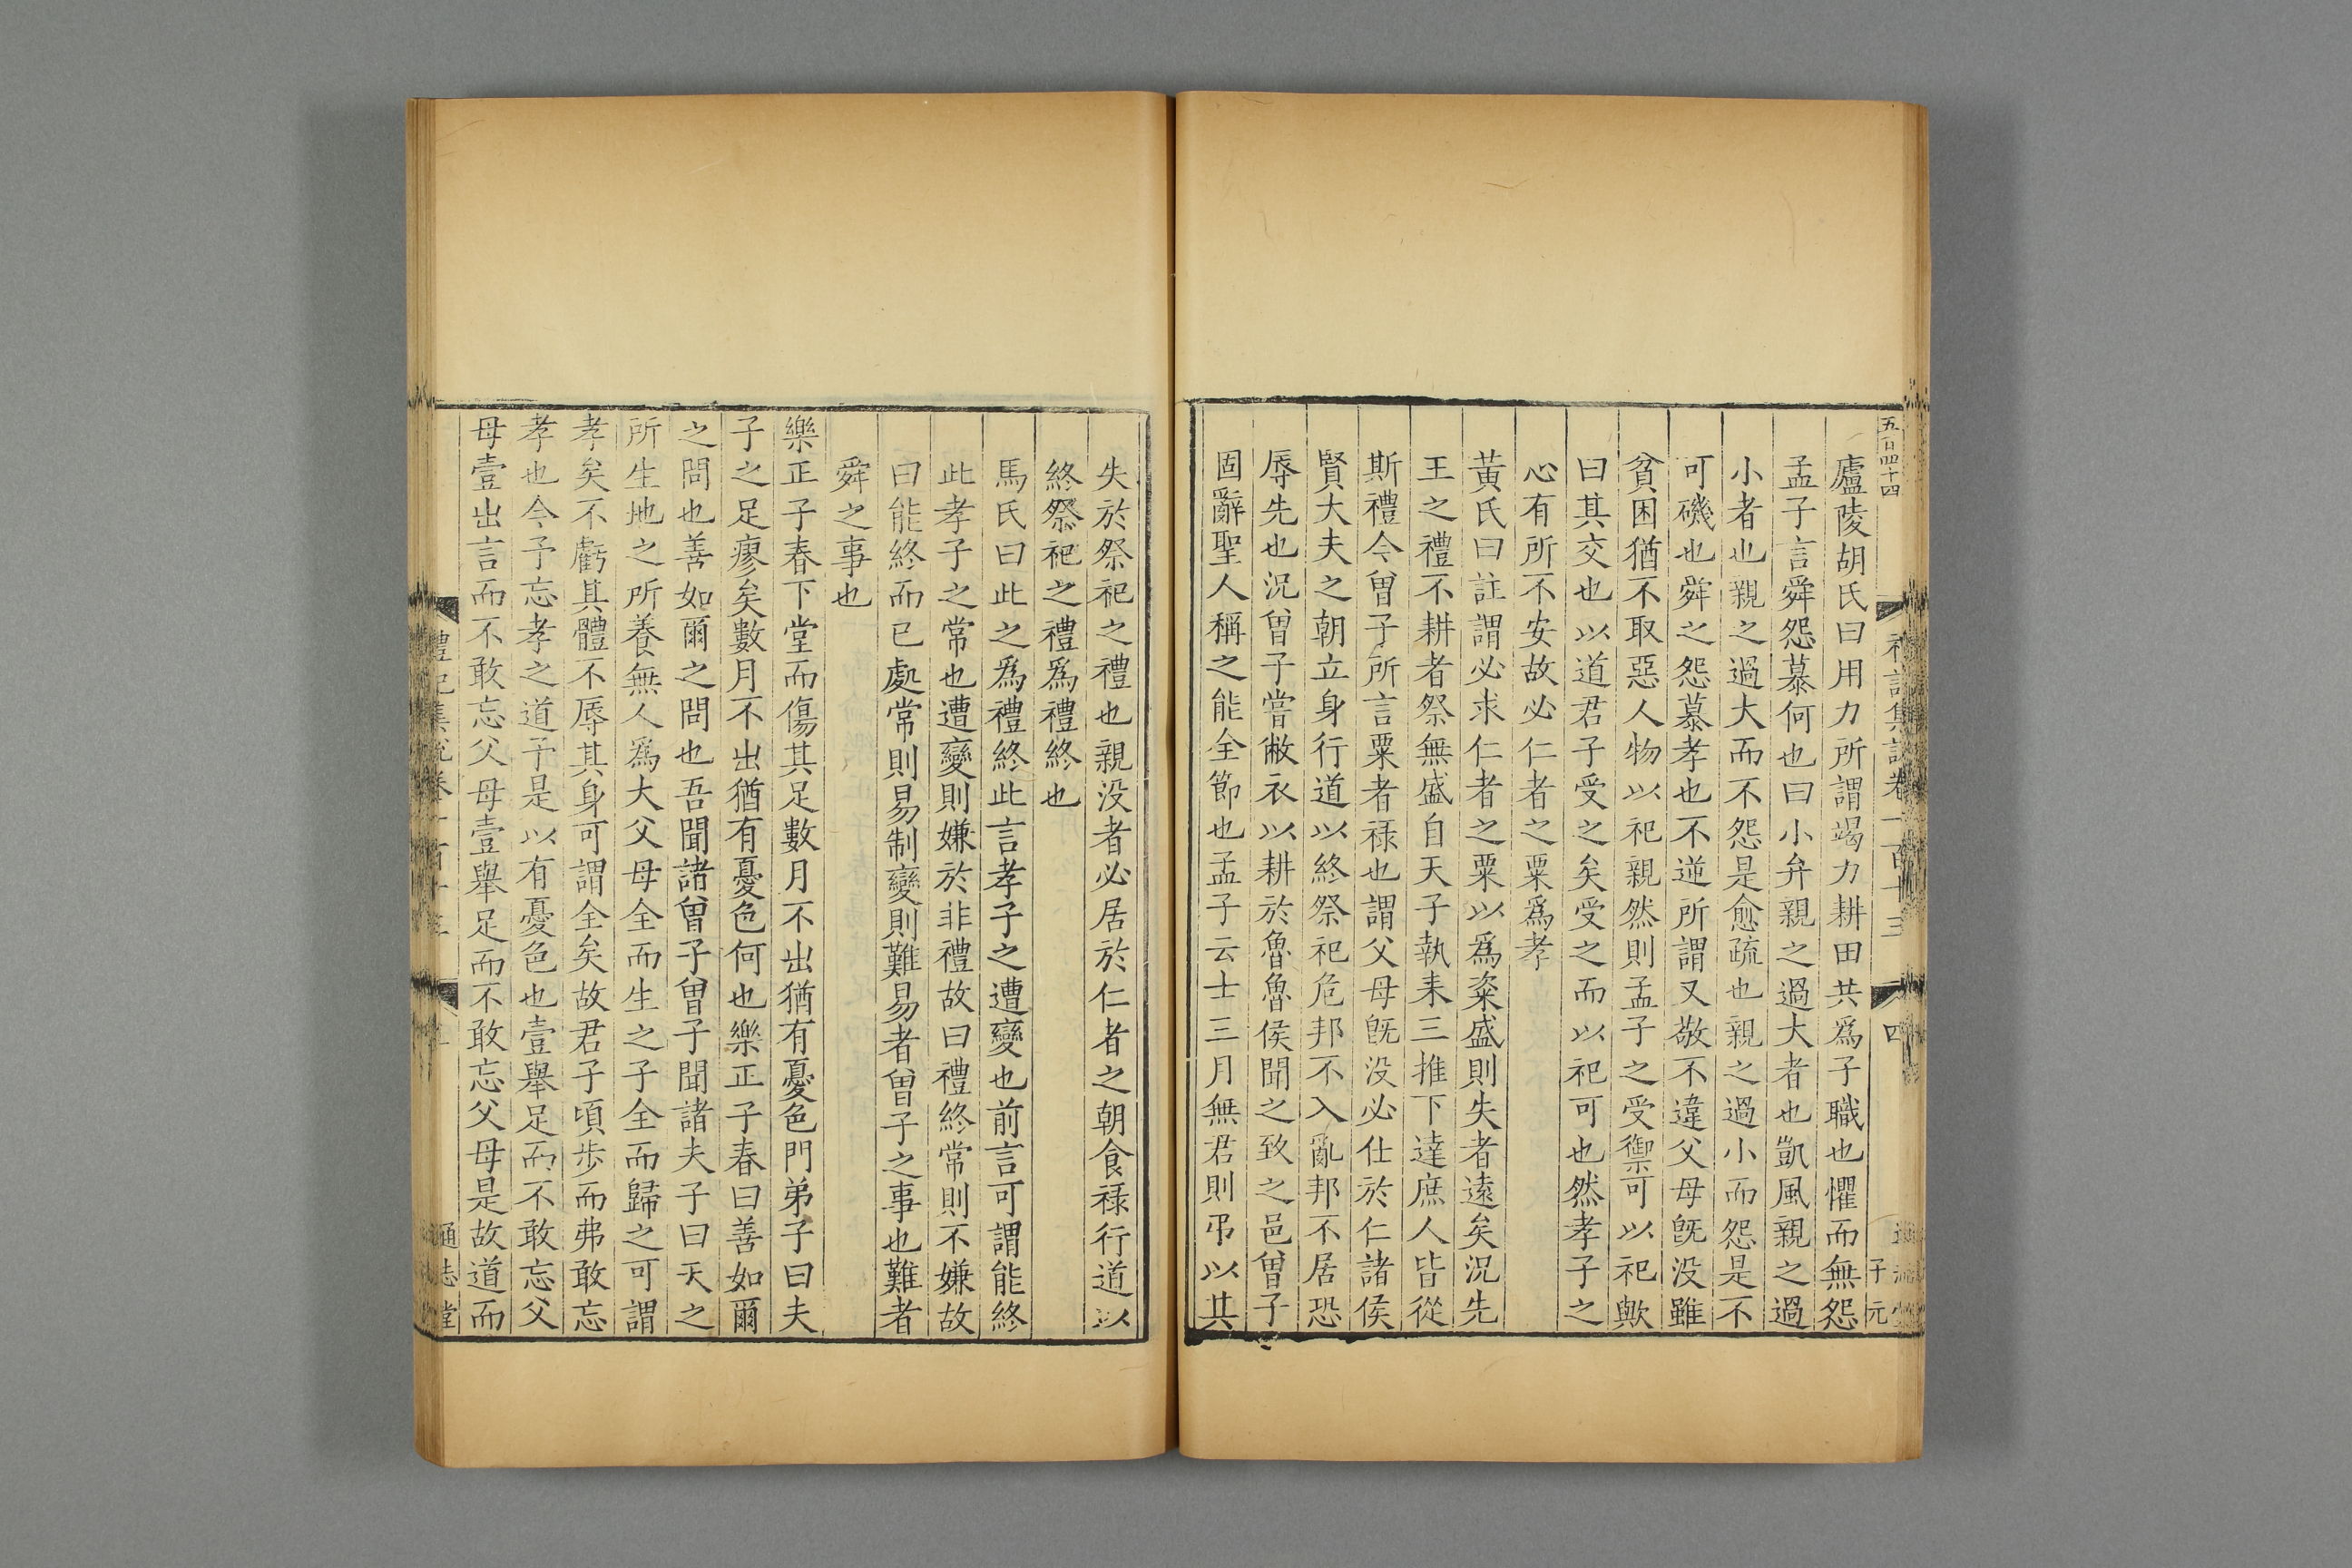 五百四十四
禮記集說卷一百十三
四
子元
廬陵胡氏曰用力所謂竭力耕田共爲子職也懼而無怨
孟子言舜怨慕何也曰小弁親之過大者也凱風親之過
小者也親之過大而不怨是愈疏也親之過小而怨是不
可磯也舜之怨慕孝也不逆所謂又敬不違父母旣没雖
貧困猶不取惡人物以祀親然則孟子之受禦可以祀歟
曰其交也以道君子受之矣受之而以祀可也然孝子之
心有所不安故必仁者之粟爲孝
黃氏曰註謂必求仁者之粟以爲粢盛則失者遠矣況先
王之禮不耕者祭無盛自天子執耒三推下達庶人皆從
斯禮今曾子所言粟者祿也謂父母旣没必仕於仁諸侯
賢大夫之朝立身行道以終祭祀危邦不入亂邦不居恐
辱先也況曾子嘗敝衣以耕於魯魯侯聞之致之邑曾子
固辭聖人稱之能全節也孟子云士三月無君則弔以其
失於祭祀之禮也親没者必居於仁者之朝食祿行道以
終祭祀之禮爲禮終也
馬氏曰此之爲禮終此言孝子之遭變也前言可謂能終
此孝子之常也遭變則嫌於非禮故曰禮終常則不嫌故
曰能終而已處常則易制變則難易者曾子之事也難者
舜之事也
樂正子春下堂而傷其足數月不出猶有憂色門弟子曰夫
子之足瘳矣數月不出猶有憂色何也樂正子春曰善如爾
之問也善如爾之問也吾聞諸曾子曾子聞諸夫子曰天之
所生地之所養無人爲大父母全而生之子全而歸之可謂
孝矣不虧其體不辱其身可謂全矣故君子頃步而弗敢忘
孝也今予忘孝之道予是以有憂色也壹舉足而不敢忘父
母壹出言而不敢忘父母壹舉足而不敢忘父母是故道而
通志堂